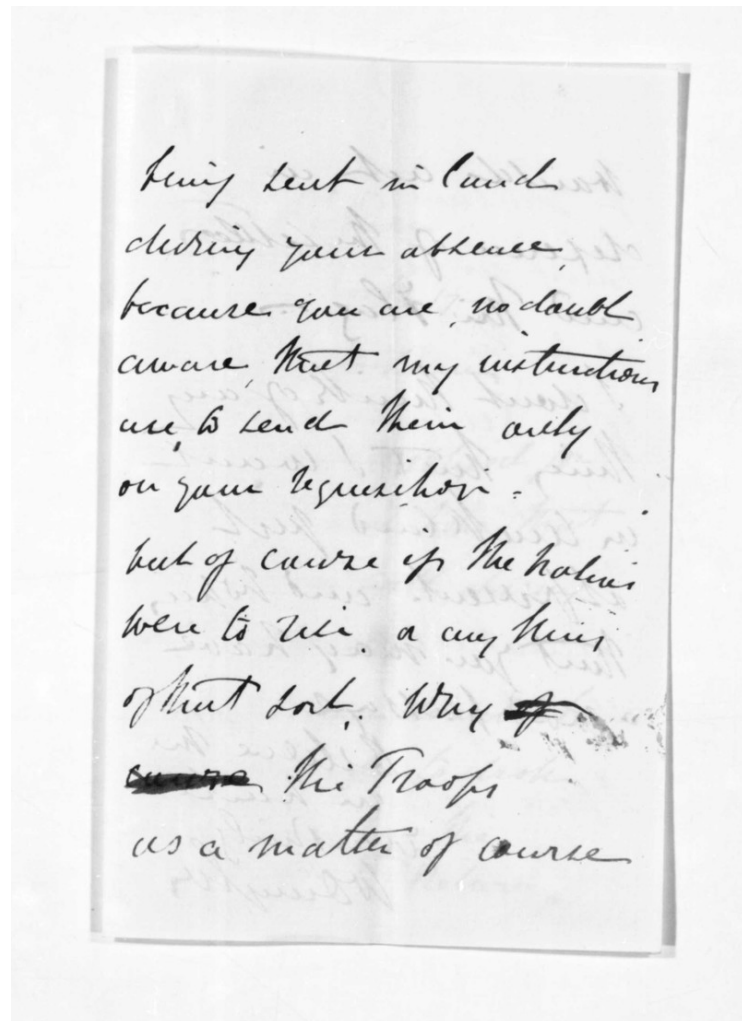 being sent inland
during your absence,
because you are, no doubt
aware, that my instructions
are, to send them only
on your requisition.
but of course if the natives
were to rise, or any thing
of that sort. Why of
course the Troops
as a matter of course